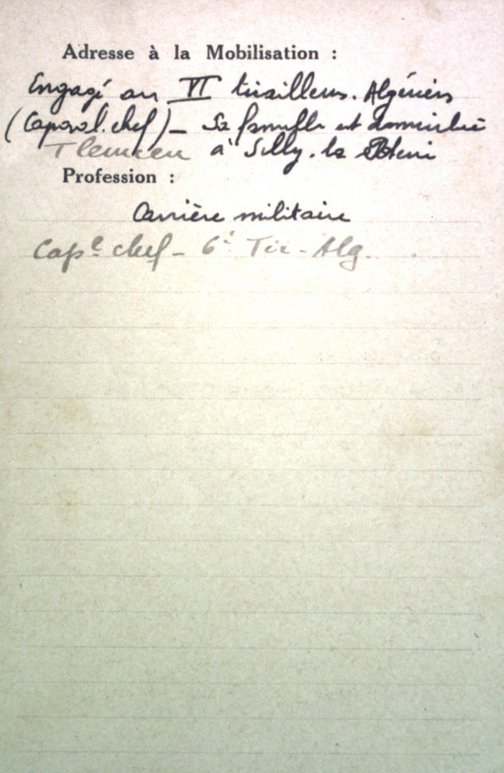 Adresse à la Mobilisation :
Engagé au VI tirailleurs. Algériens
(Caporal. chef) – Sa famille est domiciliée
Tlemcen à Silly. la
Profession :
Carrière militaire
Capl chef – 6e Tir – Alg.